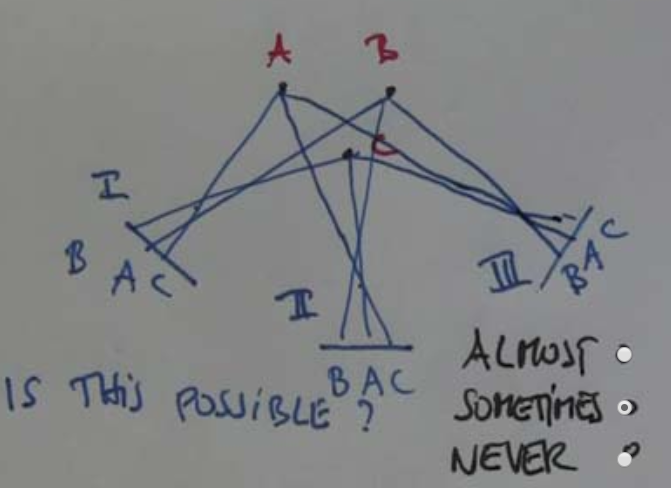 A B
C
I
B A C
II
B A C
III
B A C
IS THIS POSSIBLE?
ALMOST
SOMETIMES
NEVER